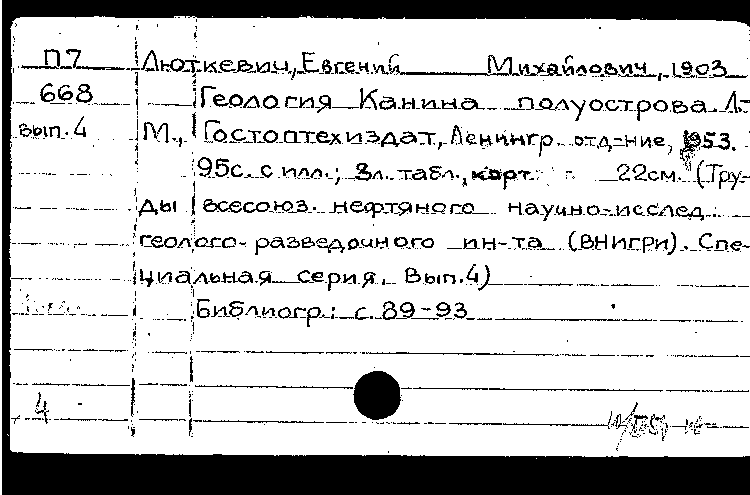 П7 Люткевич, Евгений Михайлович, 1903
668 Геология Канина полуострова. Л.-
вып.4 М., Гостоптехиздат, Ленингр. отд-ние, 1953.
95с. с илл.; 3л. табл., карт. 22см. (Тру-
ды Всесоюз. нефтяного научно-исслед.
геолого-разведочного ин-та (ВНИГРИ). Спе-
циальная серия, Вып.4)
Библиогр.: с. 89-93
4